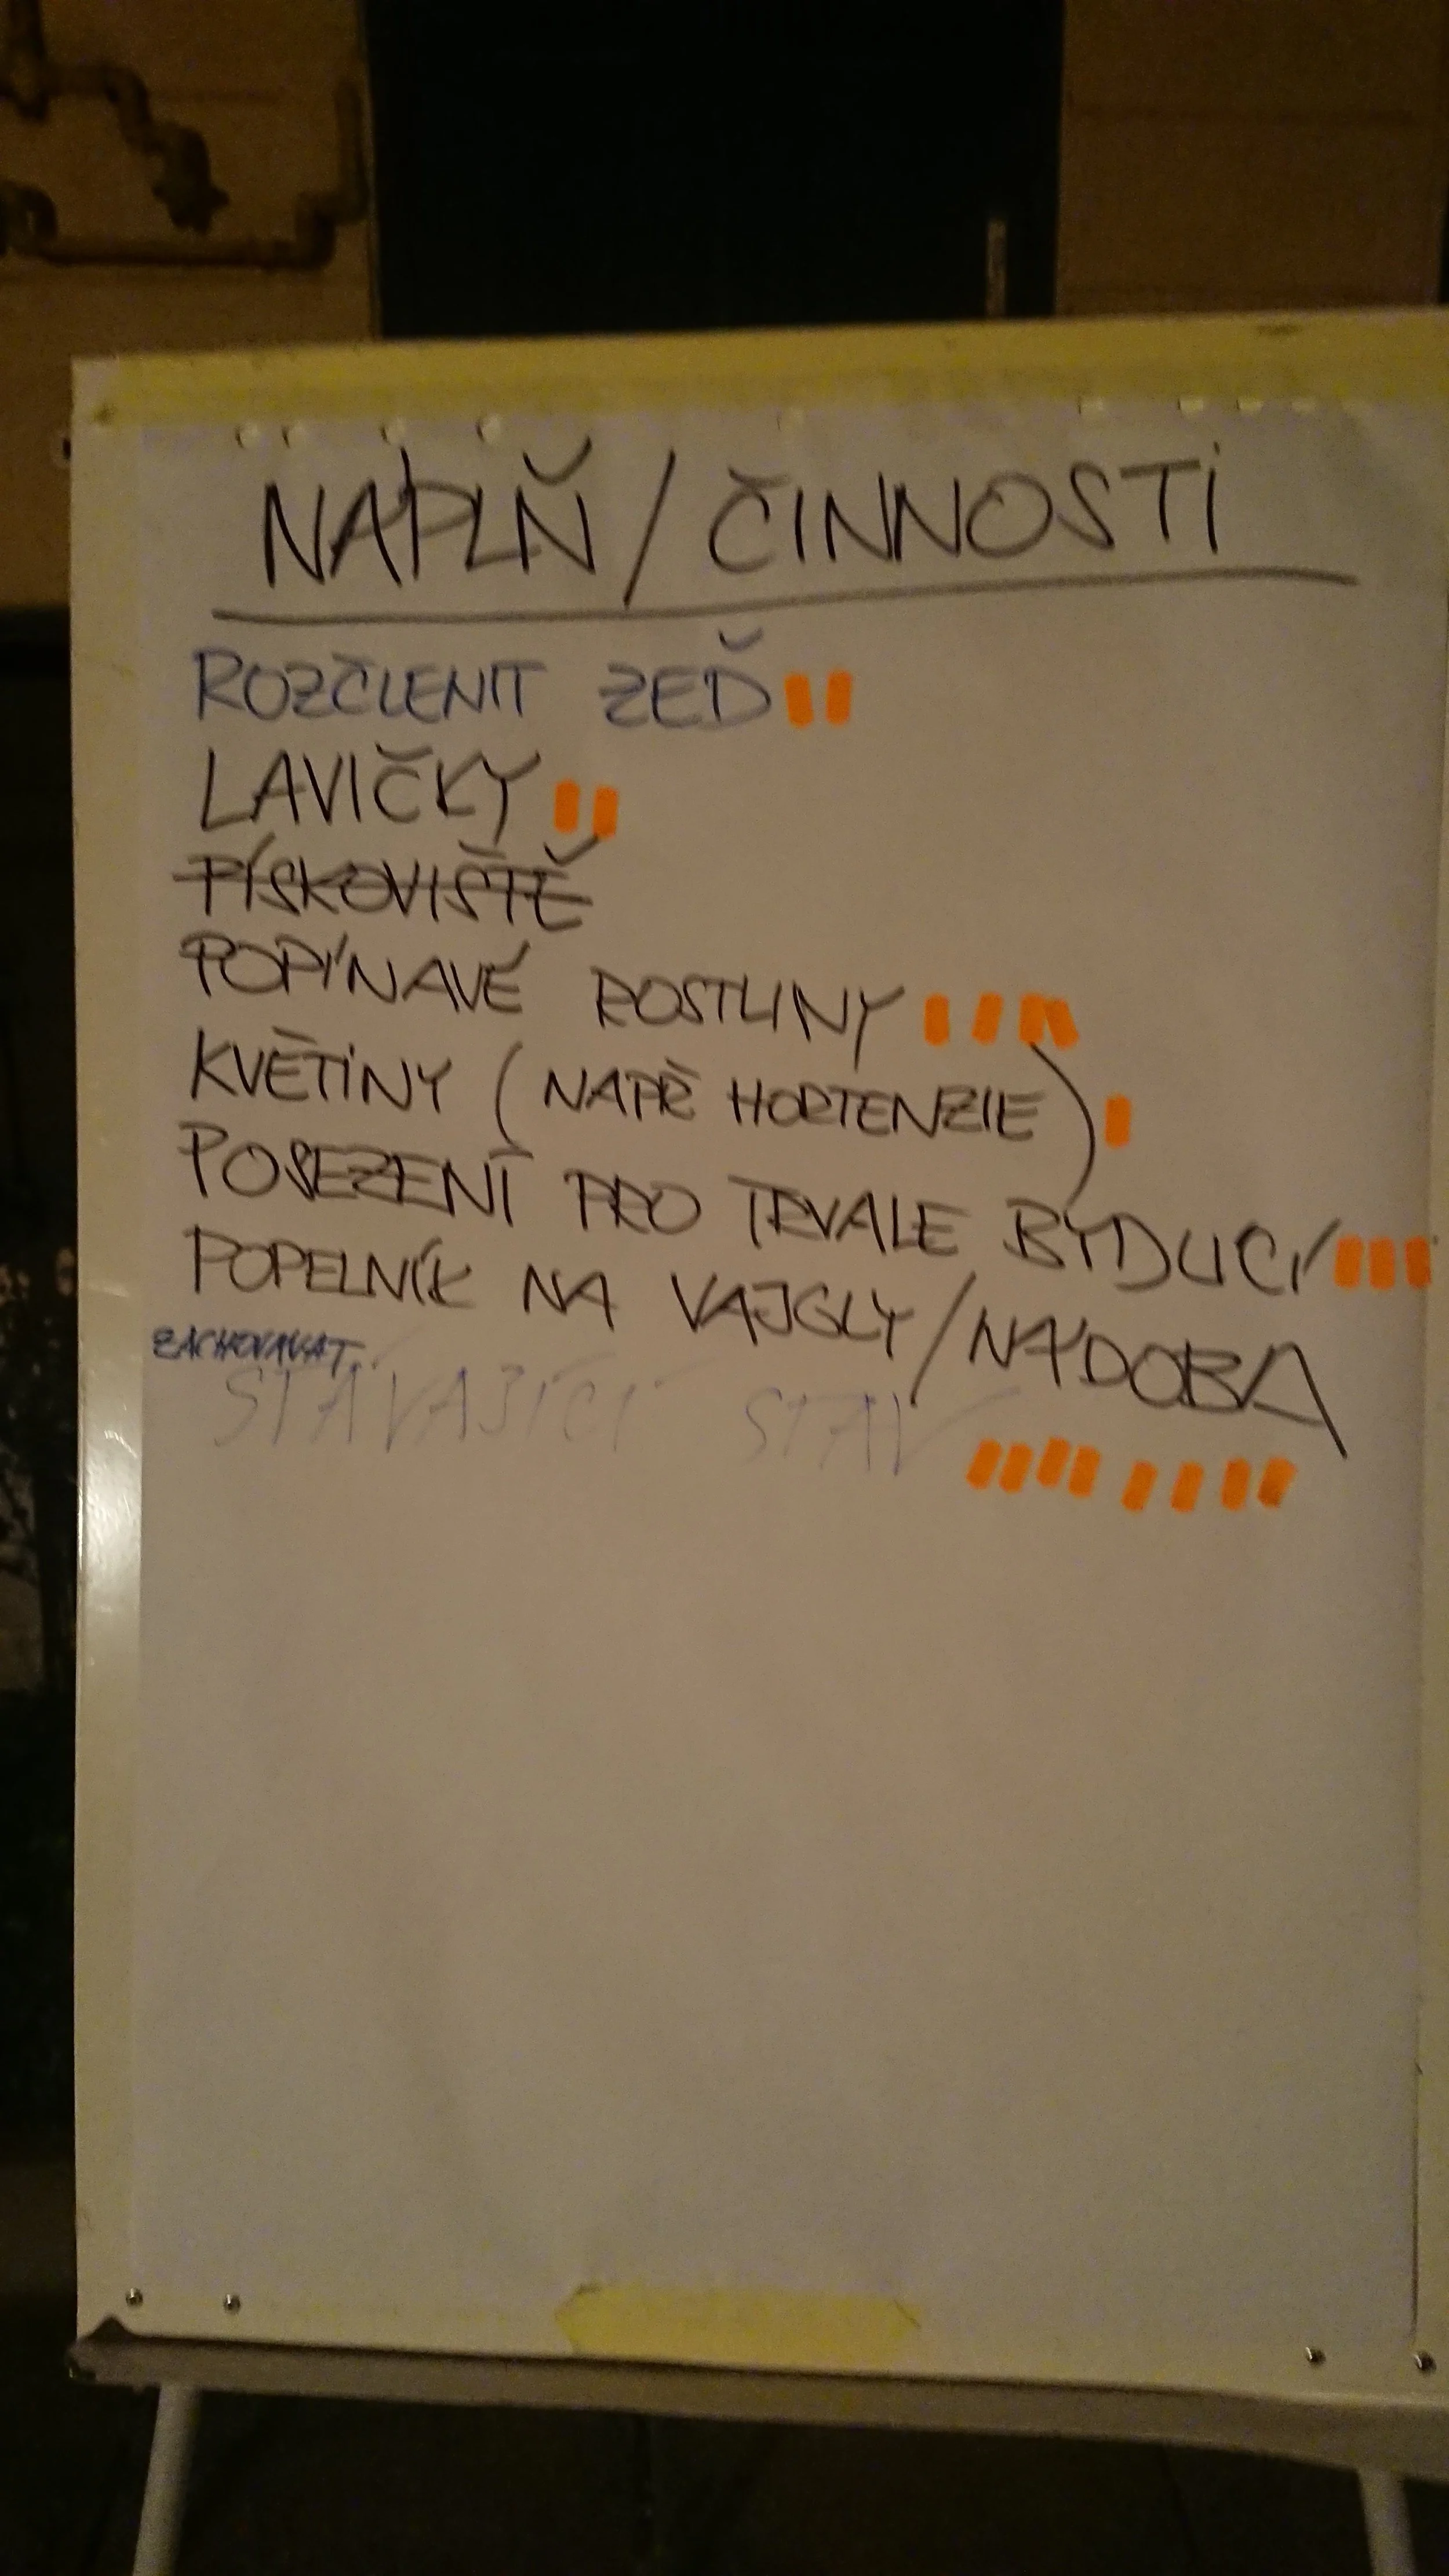 NÁPLŇ / ČINNOSTI
ROZČLENIT ZEĎ
LAVIČKY
PÍSKOVIŠTĚ
POPÍNAVÉ ROSTLINY
KVĚTINY (NAPŘ HORTENZIE)
POSEZENÍ PRO TRVALE BYDLÍCÍ
POPELNÍK NA VAJGLY/NÁDOBA
STÁVAJÍCÍ STAV